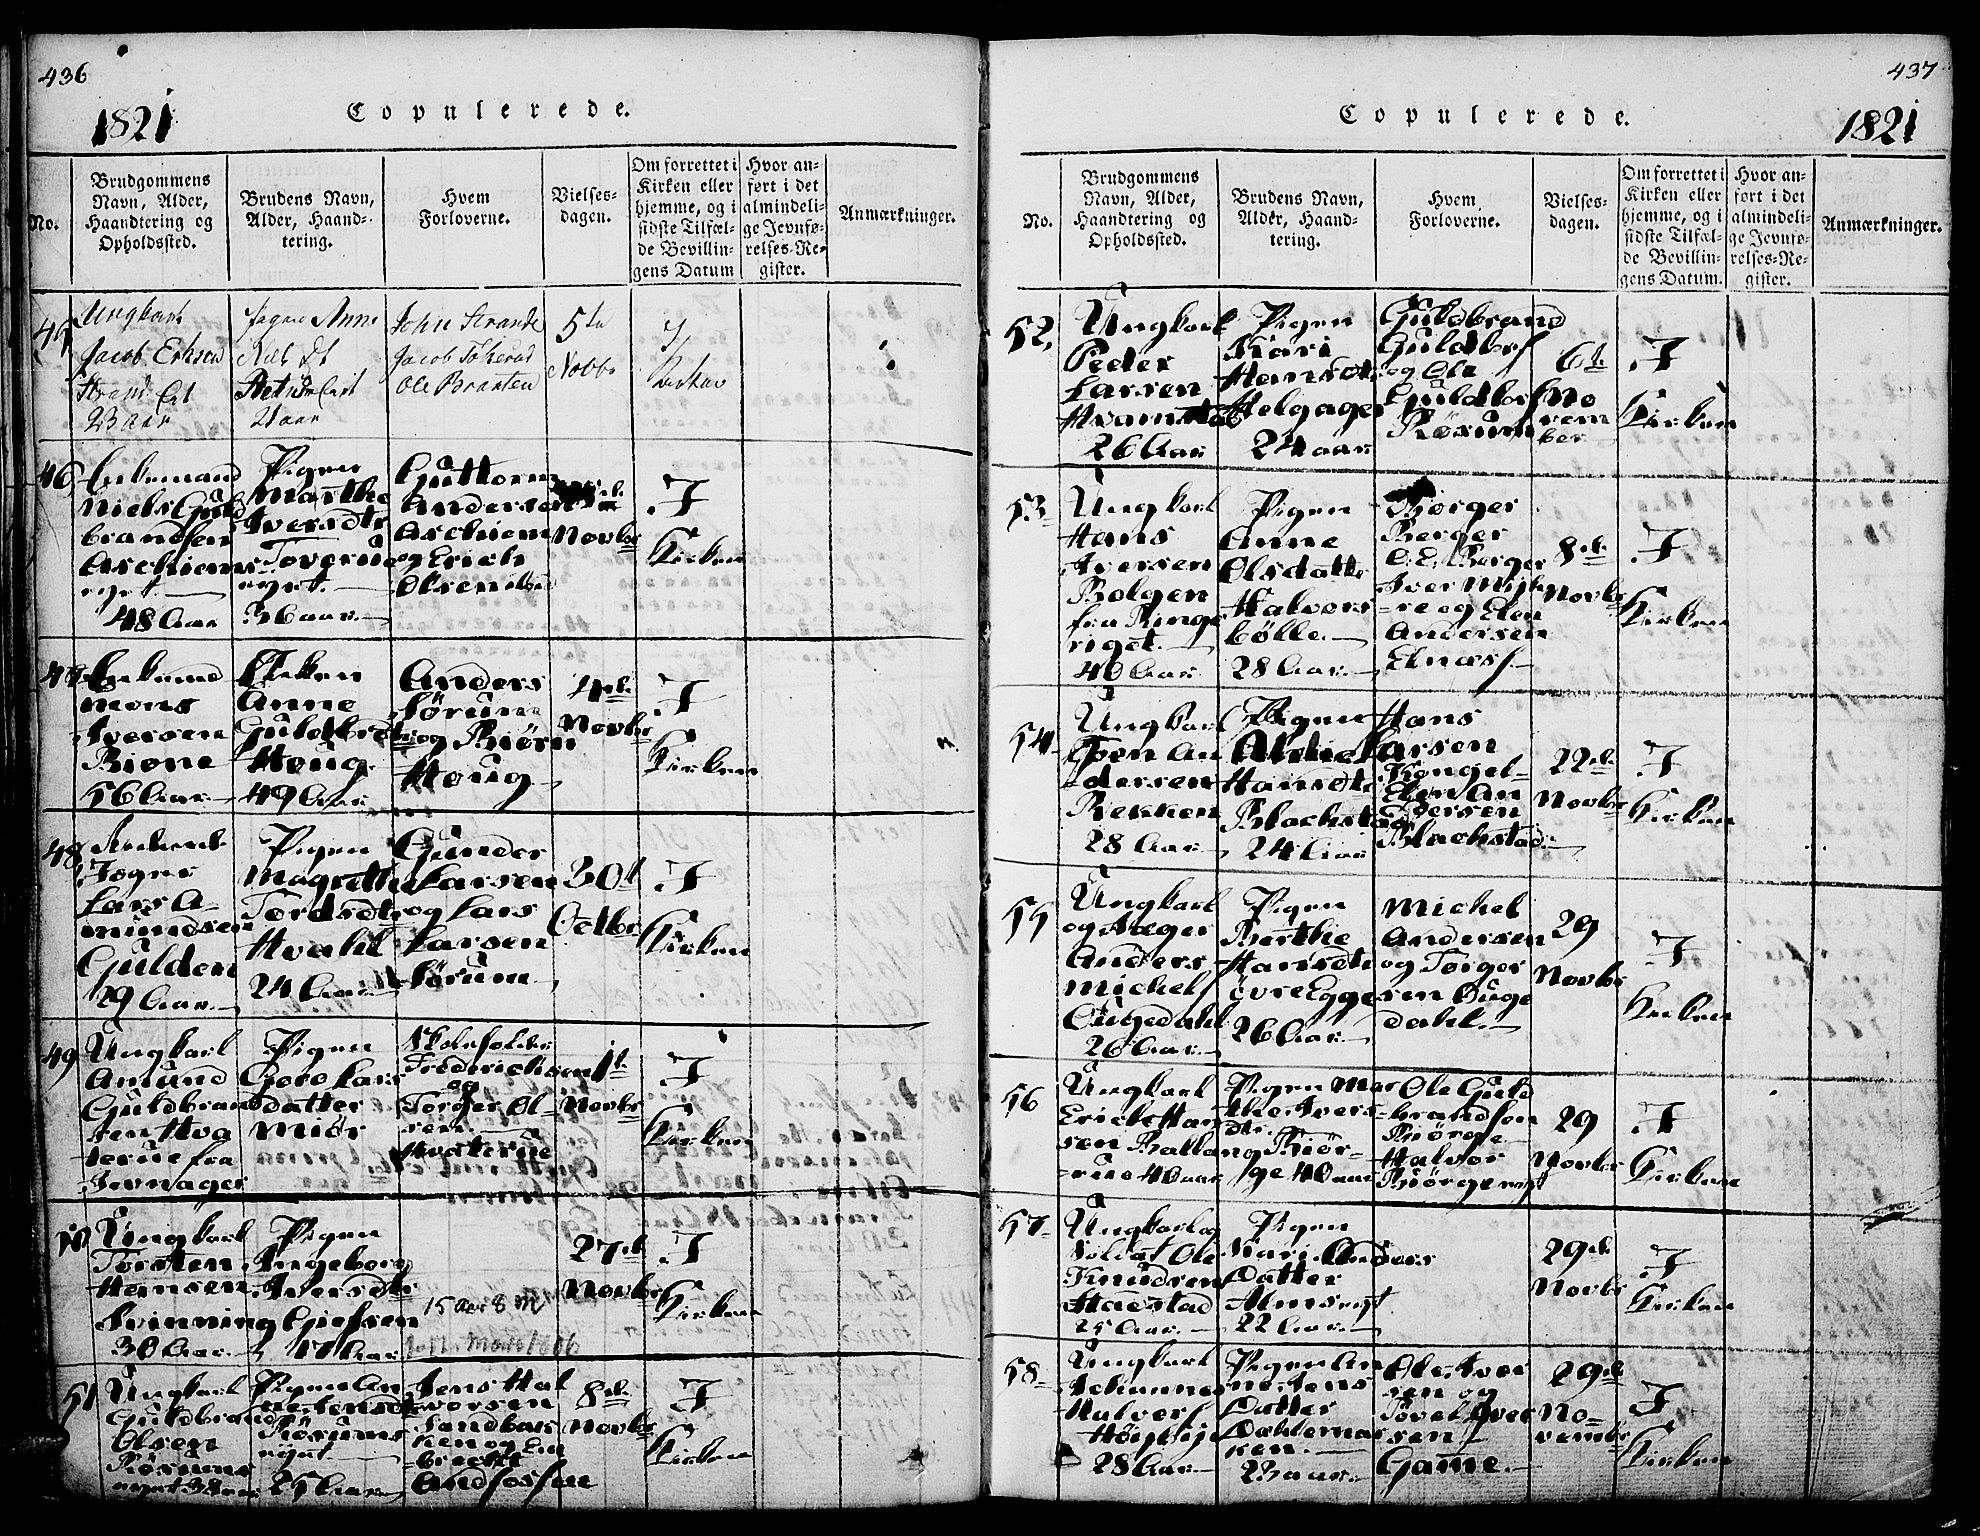 436
1821
Copulerede.
No.
Brudgommens
Navn, Alder,
Haandtering og
Opholdssted.
Brudens Navn,
Alder, Haand-
tering.
Hvem
Forloverne.
Vielses-
dagen.
Om forrettet i
Kirken eller
hjemme, og i
sidste Tilfæl-
de Bevillin-
gens Datum
Hvor an-
ført i det
almindeli-
ge Jevnfø-
relses-Re-
gister.
Anmærkninger.
45
Ungkarl
Jacob Erksen
Strand Eet
23 aar
Pigen Anne
Niels Dt
21 aar
John Strande
Jacob
Ole Braaten
5te
Novbr
I
Kirken
46
Enkemand
Niels Guld
brandsen
Aschiems
eyet.
48 Aar
Pigen
Marthe
Iversdtr
Toverud
eyet.
36 aar.
Guttorm
Andersen
Aschiem
og Erich
Olsen
Novbr
I
Kirken
47
Enkemd
Mons
Iversen
Bione
56 Aar.
Enken
Anne
Guldbrdtr
Houg.
49 Aar.
Anders
Sørum
og Biørn
Houg
4de
Novbr
I
Kirken
48
Jøger
Lars A-
mundsen
Gulden
29 Aar.
Pigen
Magrethe
Tordsdtr
Hvahl
24 Aar.
Gunder
Larsen
og Lars
Larsen
Sørum.
30t
Octbr
I
Kirken
49
Ungkarl
Amund
Guldbrand
sen Hva
terue fra
Jevnager
Pigen
Goro Lars
datter
Miør
Skoleholder
Frederichsen
og
Torger Ol-
sen.
Hvaterue
1t
Novbr
I
Kirken
50
Ungkarl
Torsten
Hansen
Svinning
30 Aar.
Pigen
Ingeborg
Iversdtr
Gielsen
17 Aar
15 aar 8 m
27de
Novbr
I
Kirken
51
Ungkarl
Guldbrand
Olsen
Røsums
eyet 33 aar
Pigen An
ne Jensdtr
Røsums
eyet
25 Aar
Jens Hal
vorsen
Sandbak
ken og Em
brecht
Andfossen
8de
Novbr
I
Kirken
437
Copulerede.
1821
No.
Brudgommens
Navn, Alder,
Haandtering og
Opholdssted.
Brudens Navn,
Alder, Haand-
tering.
Hvem
Forloverne.
Vielses-
dagen.
Om forrettet i
Kirken eller
hjemme, og i
sidste Tilfæl-
de Bevillin-
gens Datum.
Hvor an-
ført i det
almindeli-
ge Jevnfø-
relses-Re-
gister.
Anmærkninger.
52.
Ungkarl
Peder
Larsen
26 Aar
Pigen
Kari
Hansdtr
Helgager
24 aar
Guldbrand
Guldbrs
og Ole
Guldbrs
Røsum
6te
No
vem
ber
I
Kirken
53
Ungkarl
Hans
Iversen
Bolgen
fra Ringe
riget.
40 Aar
Pigen
Anne
Olsdattr
Halvors
bølle.
28 Aar.
Børger
Berger
C. E. Berger
Iver
re og Elen
Andersen
Elnæs
8de
Novbr
I
Kirken
54
Ungkarl
Even An
dersen
Bekken
28 Aar.
Pigen
Hansdtr
Blackstad
24 Aar
Hans
Larsen
Kongel-
Elen An
dersen
Blackstad.
22de
Novbr
I
Kirken
55
Ungkarl
og Jæger
Anders
Michels
Dugedahl
26 Aar.
Pigen
Berthe
Hansdtr
øvre Egge
26 Aar.
Michel
Andersen
og Torger
sen Duge
dahl.
29
Novbr
I
Kirken
56
Ungkarl
Erich Han
sen Ballang
rue 40 aar
Pigen Mar
the Ivers
dtr. Biør-
ge 40 aar
Ole Guld
brandsen
Biørge
Halvor
Biørge
29
Novbr
I
Kirken
57
Ungkarl og
Soldat Ole
Knudsen
Haestad
25 Aar.
Pigen
Kari Anders
Datter
Alms eyet
22 Aar.
29de
Novbr
I
Kirken
58
Ungkarl
Johannes
Halvors
28 Aar.
Pigen An
ne Jens
Datter
Dæhlernas
ken.
23 aar.
Ole Iver
sen og
Tovel Iver
sen
Game.
29de
No-
vembr
I
Kirken